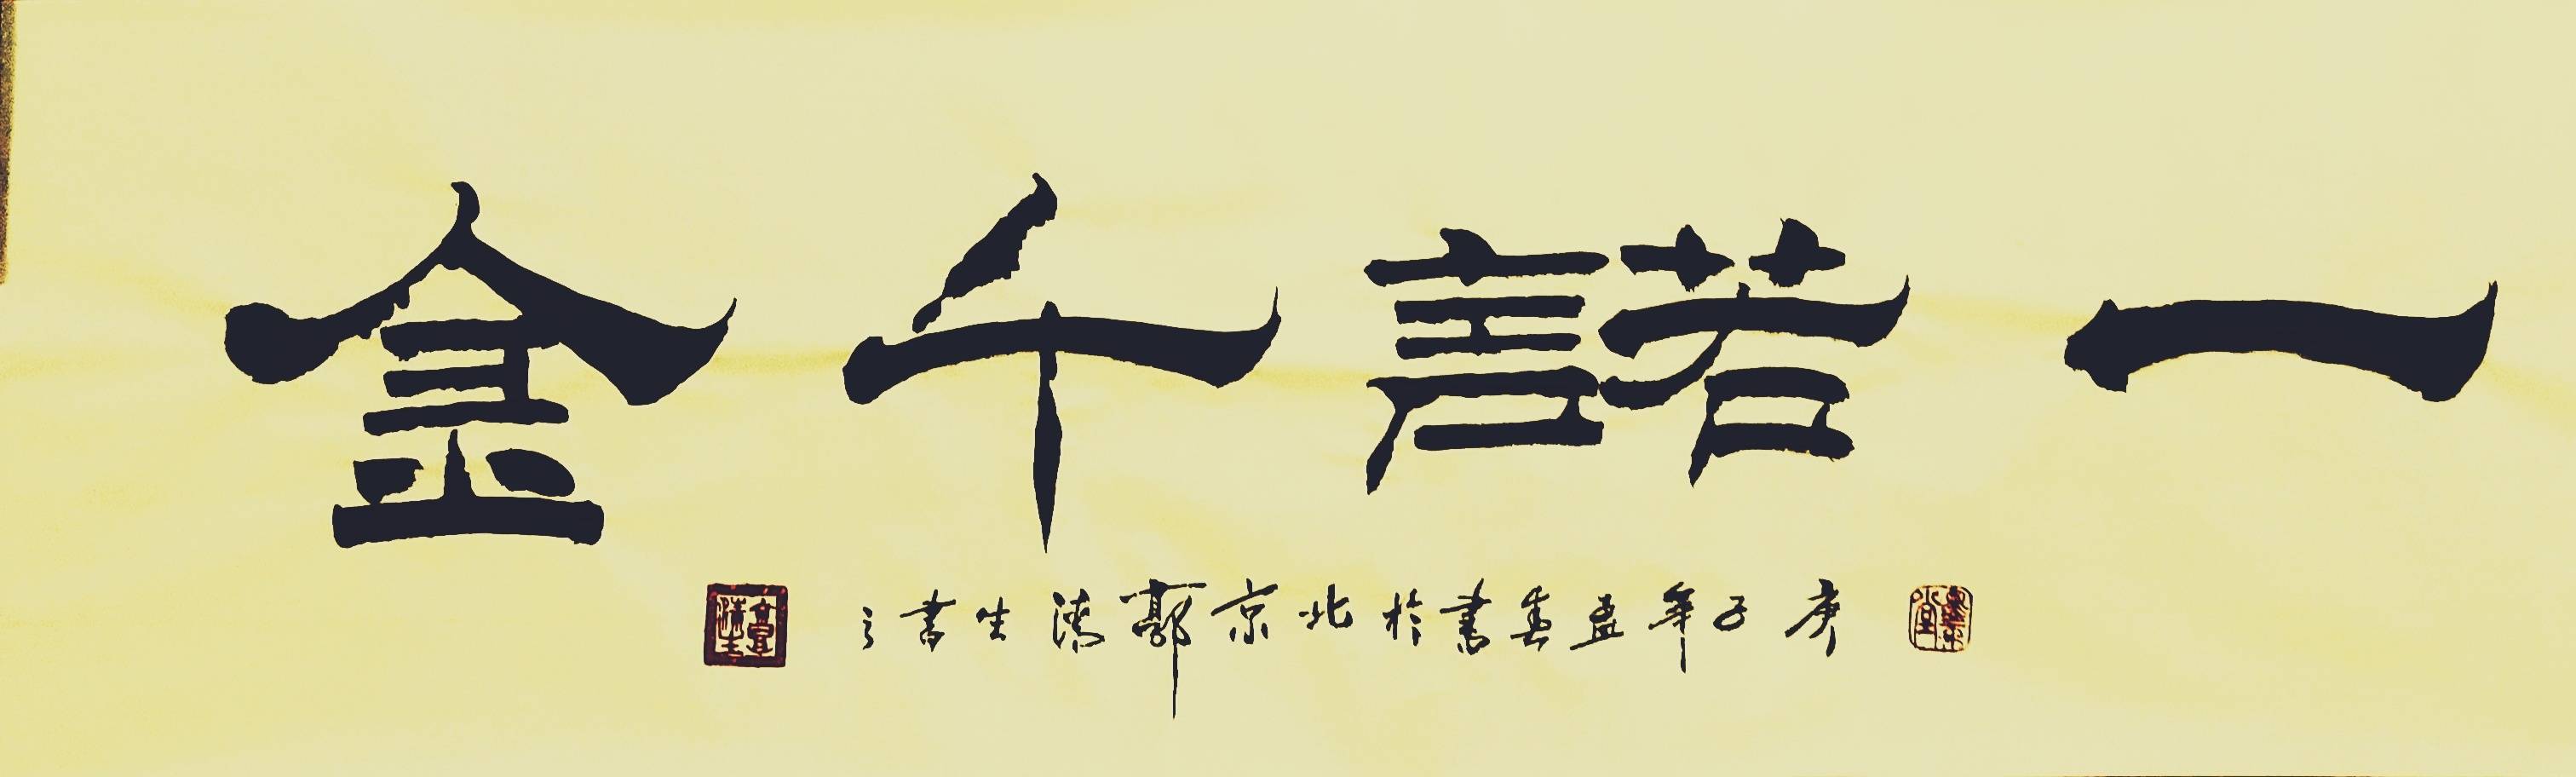 一諾千金
庚子年孟春書於北京郭清生書之